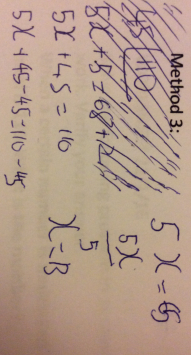 Method 3:
5x + 45 = 110
5x + 45 - 45 = 110 - 45
5x = 65
5x
5
x = 13